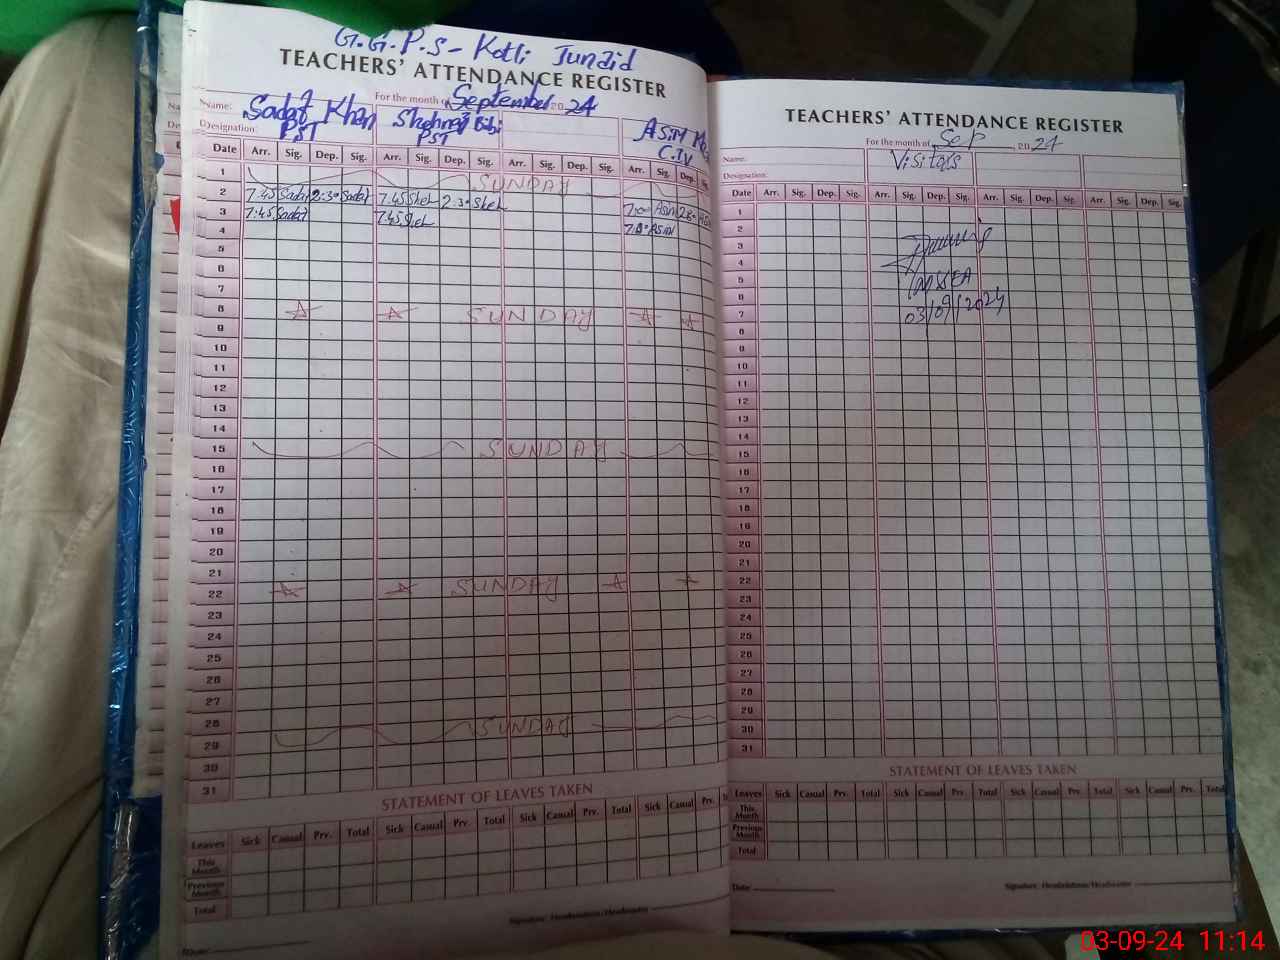 G.G.P.S - Kotli Junaid
TEACHERS' ATTENDANCE REGISTER
For the month of September 2024
Name: Sadaf Khan
Designation: PST PST C.IV
Date Arr. Sig. Dep. Sig. Arr. Sig. Dep. Sig. Arr. Sig. Dep. Sig. Arr. Sig. Dep.
1 SUNDAY
2 7.45 Sadaf 2:30 Sadaf 7.45 Sheh 2:30 Sheh
3 7:45 Sadaf 7.45 Sheh
4
5
6
7
8 SUNDAY
9
10
11
12
13
14
15 SUNDAY
16
17
18
19
20
21
22 SUNDAY
23
24
25
26
27
28 SUNDAY
29
30
31
STATEMENT OF LEAVES TAKEN
Leaves Sick Casual Prv. Total Sick Casual Prv. Total Sick Casual Prv. Total Sick Casual Prv.
This Month
Previous Month
Total
Signature: Headmistress/Headmaster
Date
TEACHERS' ATTENDANCE REGISTER
For the month of Sep, 2024
Name: Visitors
Designation:
Date Arr. Sig. Dep. Sig. Arr. Sig. Dep. Sig. Arr. Sig. Dep. Sig. Arr. Sig. Dep. Sig.
1
2
3
4
5
6
7 03/09/2024
8
9
10
11
12
13
14
15
16
17
18
19
20
21
22
23
24
25
26
27
28
29
30
31
STATEMENT OF LEAVES TAKEN
Leaves Sick Casual Prv. Total Sick Casual Prv. Total Sick Casual Prv. Total Sick Casual Prv. Total
This Month
Previous Month
Total
Date
Signature: Headmistress/Headmaster
03-09-24 11:14